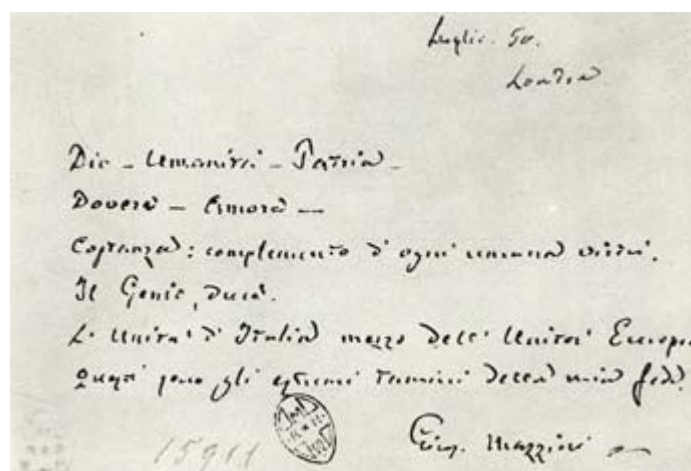 Luglio. 50.
Londra
Dio – Umanità – Patria –
Dovere – Amore –
Costanza: complemento d'ogni umana virtù.
Il Genio, duce.
L'Unità d'Italia mezzo dell'Unità Europea
Questi sono gli estremi termini della mia fede.
Gius. Mazzini
15911